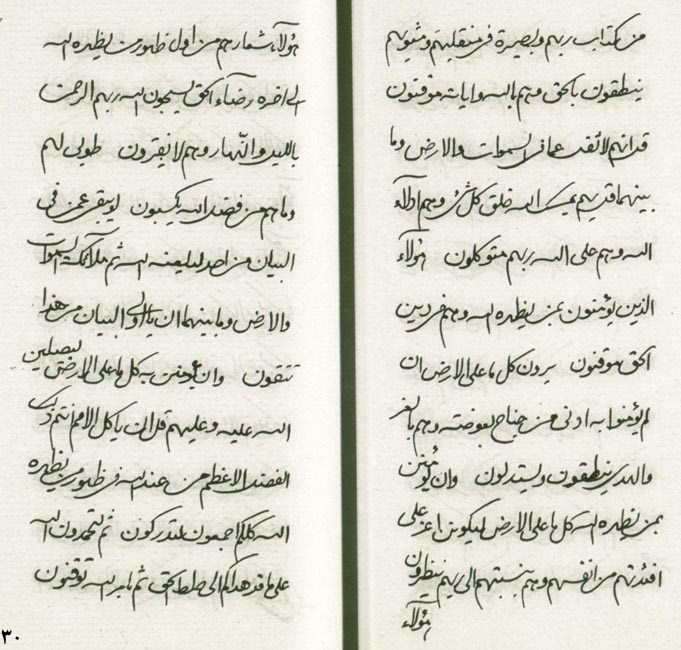 من كتاب ربهم وبصيرة في منقلبهم ومثويهم
ينطقون بالحق وهم بالله واياته موقنون
قد انهم لا تفت عما في السموات والارض وما
بينهما قد يهم الله خلق كل شئ وهم ادلاء
الله وهم على الله ربهم متوكلون هؤلاء
الذين يؤمنون بمن يظهره الله وهم في دين
الحق موقنون يرون كل ما على الارض ان
لم يؤمنوا به ادنى من جناح بعوضته وهم بالعز
والهدى ينطقون ويستدلون وان يؤمنن
بمن يظهره الله كل ما على الارض ليكونن اعز على
افئدتهم من انفسهم وهم بنسبتهم الى ربهم ينظرون
هؤلاء
هؤلاء شعارهم من اول ظهور من يظهره الله
الى اخره رضاء الحق يسبحون الله ربهم الرحمن
بالليل والنهار وهم لا يفترون طوبى لهم
وما هم من فضل الله يكسبون لو يبقى عمن في
البيان من احد ليلعنه الله ثم ملائكة السموات
والارض وما بينهما ان يا اولي البيان من هذا
تتقون وان يؤمنن به كل ما على الارض ليصلين
الله عليه وعليهم قل ان يا كل الامم انتم ذلك
الفضل الاعظم من عند الله في ظهور من يظهره
الله كلكم اجمعون لتدركون ثم لتحمدون الله
على ما قد هداكم الى صراط الحق ثم بامر الله توقنون
٣٠